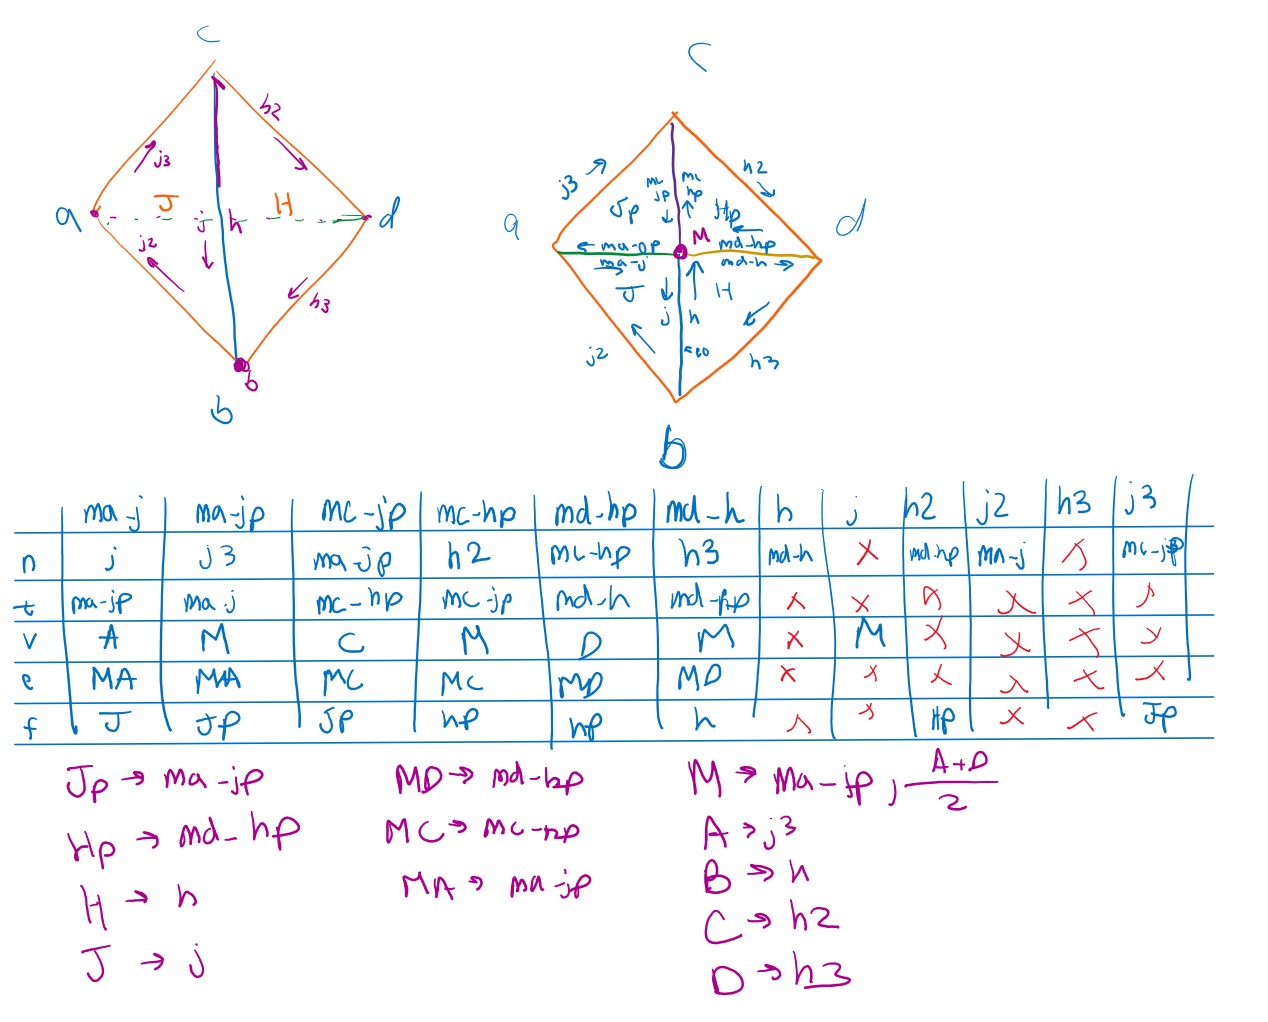 c
h2
j3
J
H
a
j
h
d
j2
h3
b
b
c
j3
h2
mc
jp
mc
hp
Jp
Hp
a
d
M
ma-jp
md-hp
ma-j
md-h
J
H
j
h
j2
e0
h3
b
ma-j ma-jp mc-jp mc-hp md-hp md-h h j h2 j2 h3 j3
n j j3 ma-jp h2 mc-hp h3 md-h x md-hp ma-j x mc-jp
t ma-jp ma-j mc-hp mc-jp md-h md-hp x x x x x x
v A M C M D M x M x x x x
e MA MA MC MC MD MD x x x x x x
f J Jp Jp hp hp h x x Hp x x Jp
Jp → ma-jp
Hp → md-hp
H → h
J → j
MD → md-hp
MC → mc-hp
MA → ma-jp
M → ma-jp, A+D
2
A → j3
B → h
C → h2
D → h3